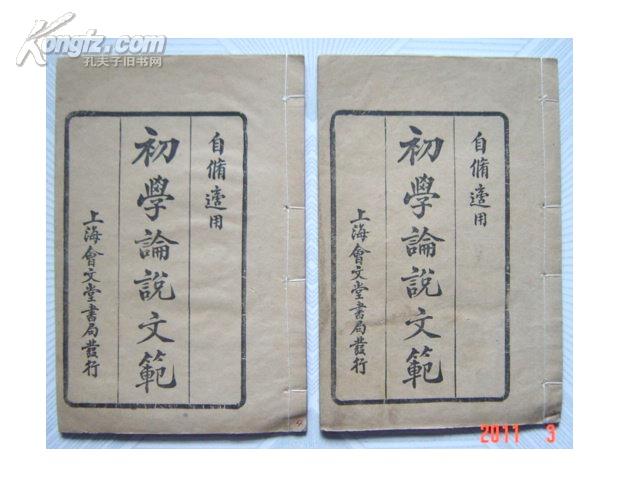 Kongfz.com
孔夫子旧书网
自脩適用
初學論說文範
上海會文堂書局發行
自脩適用
初學論說文範
上海會文堂書局發行
2011 3